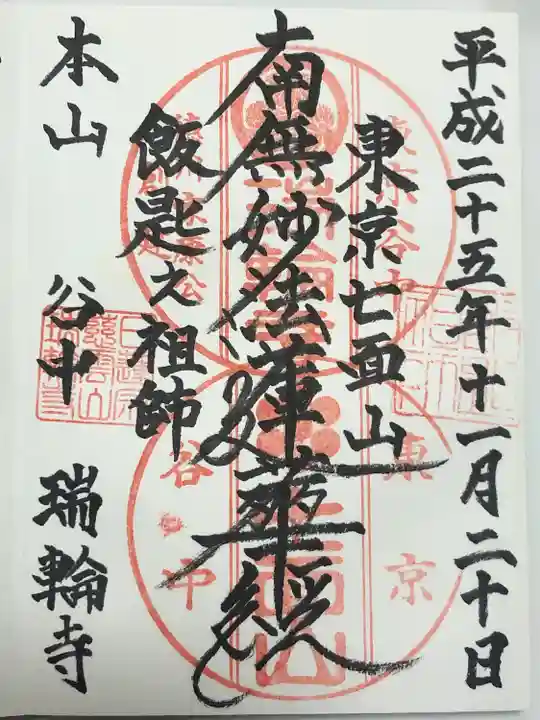 平成二十五年十一月二十日
東京七面山
南無妙法蓮華経
飯匙之祖師
本山 谷中 瑞輪寺
東京
谷中